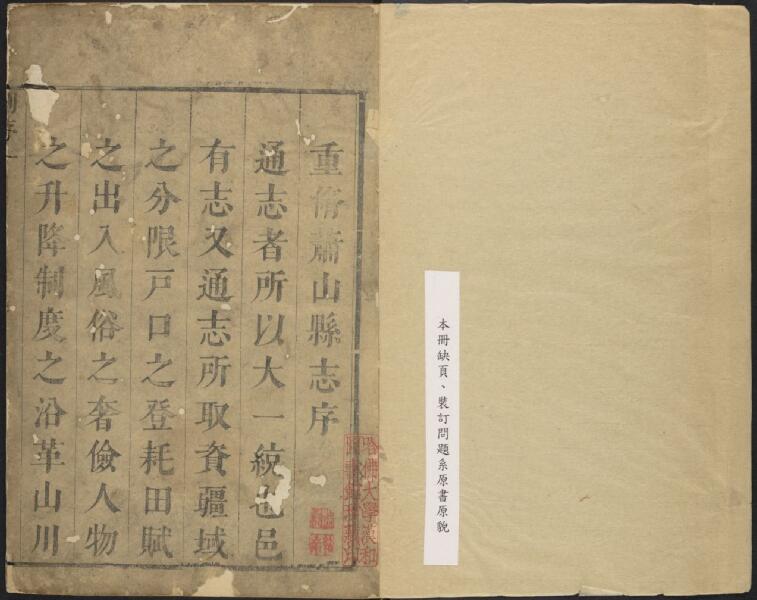 本冊缺頁、裝訂問題系原書原貌
重脩蕭山縣志序
通志者所以大一統也邑
有志又通志所取資疆域
之分限戸口之登耗田賦
之出入風俗之奢儉人物
之升降制度之沿革山川
哈佛大學漢和
圖書館珍藏印